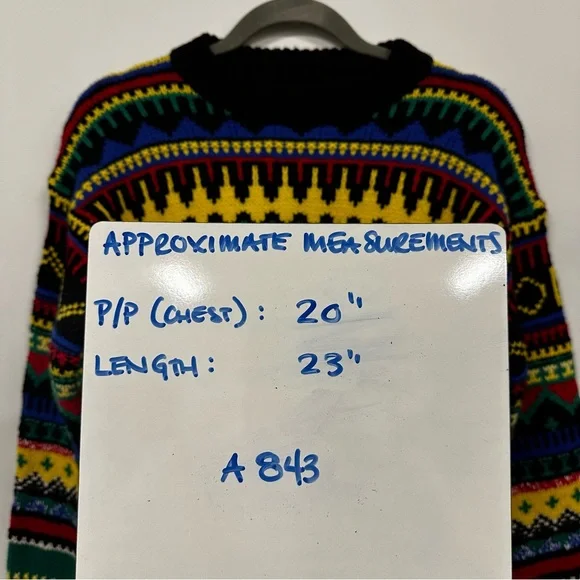 APPROXIMATE MEASUREMENTS
P/P (CHEST): 20"
LENGTH: 23"
A 843